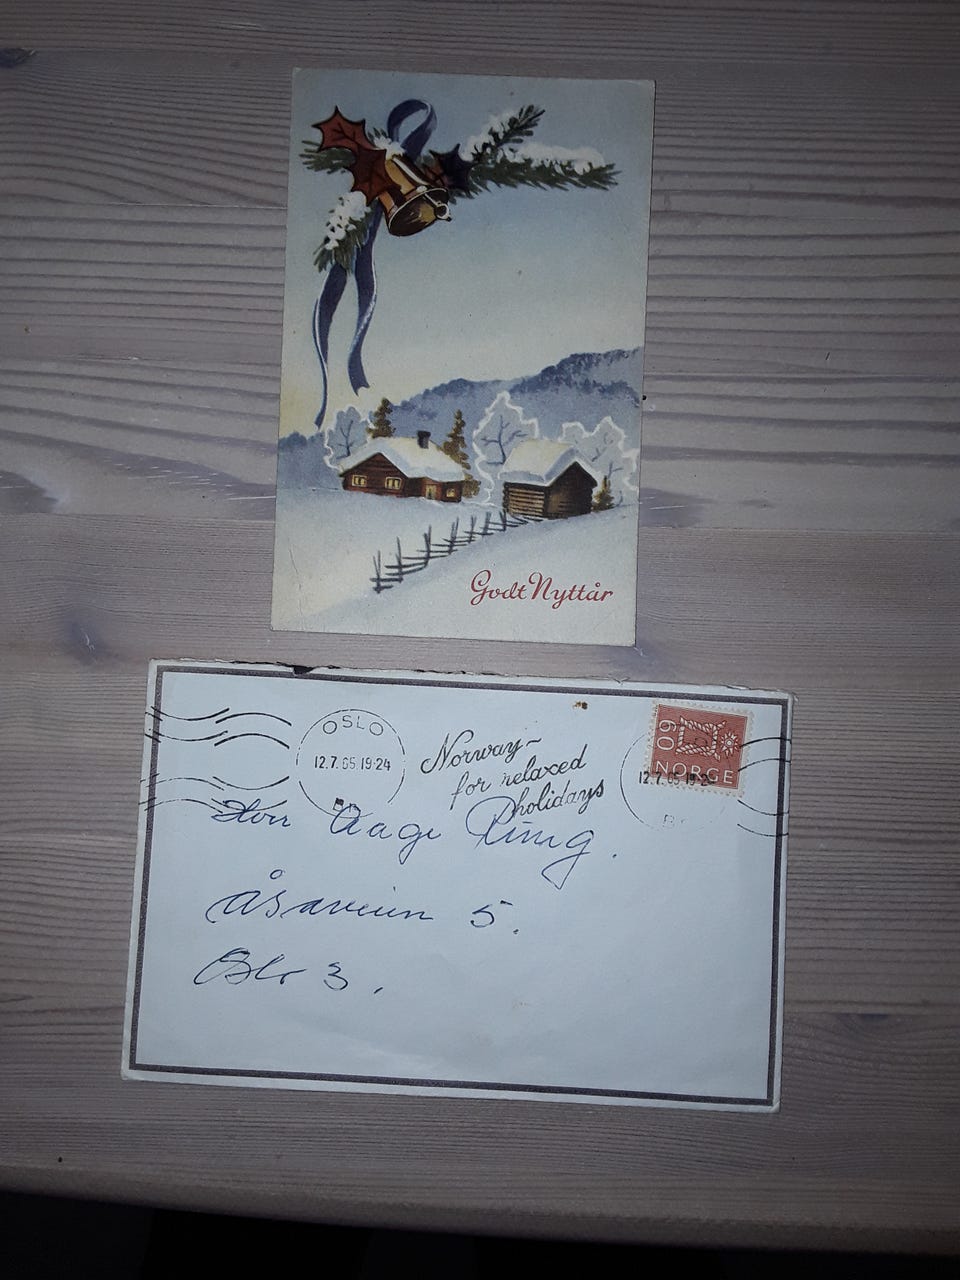 Godt Nyttår
OSLO
12.7.65.19-24
Norway-
for relaxed
holidays
60
NORGE
12.7.65 19-2
Herr Aage Ring.
Åsaveien 5.
Oslo 3.